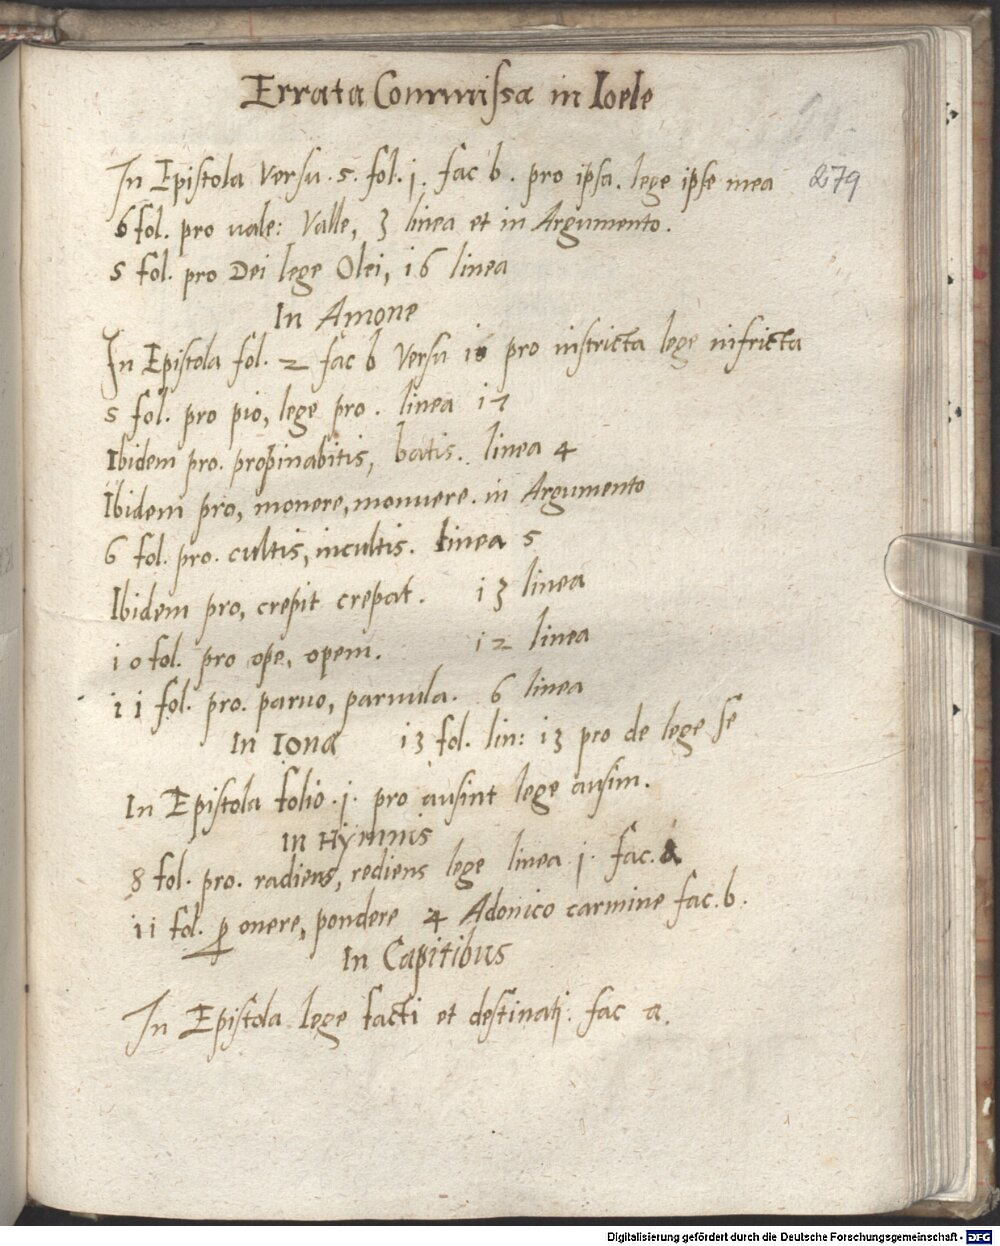 Errata Commissa in Ioele
In Epistola Versu. 5. fol. j. fac b. pro ipsa. lege ipse mea
279
6 fol. pro uale: Valle, 3 linea et in Argumento.
5 fol. pro Dei lege Olei, i6 linea
In Amone
In Epistola fol. 2 fac b Versu i6 pro instricta lege infricta
5 fol. pro pio, lege pro. linea i7
Ibidem pro. propinabitis, batis. linea 4
Ibidem pro, monere, monuere. in Argumento
6 fol. pro. cultis, incultis. linea 5
Ibidem pro, crepit crepat. i3 linea
i0 fol. pro ope, opem. i2 linea
ii fol. pro. paruo, paruula. 6 linea
In Iona i3 fol. lin: i3 pro de lege se
In Epistola folio. j. pro ausint lege ausim.
In Hymnis
8 fol. pro. radiens, rediens lege linea j. fac. a
ii fol. p onere, pondere 4 Adonico carmine fac. b.
In Capitibus
In Epistola lege facti et destinati. fac a.
Digitalisierung gefördert durch die Deutsche Forschungsgemeinschaft - DFG